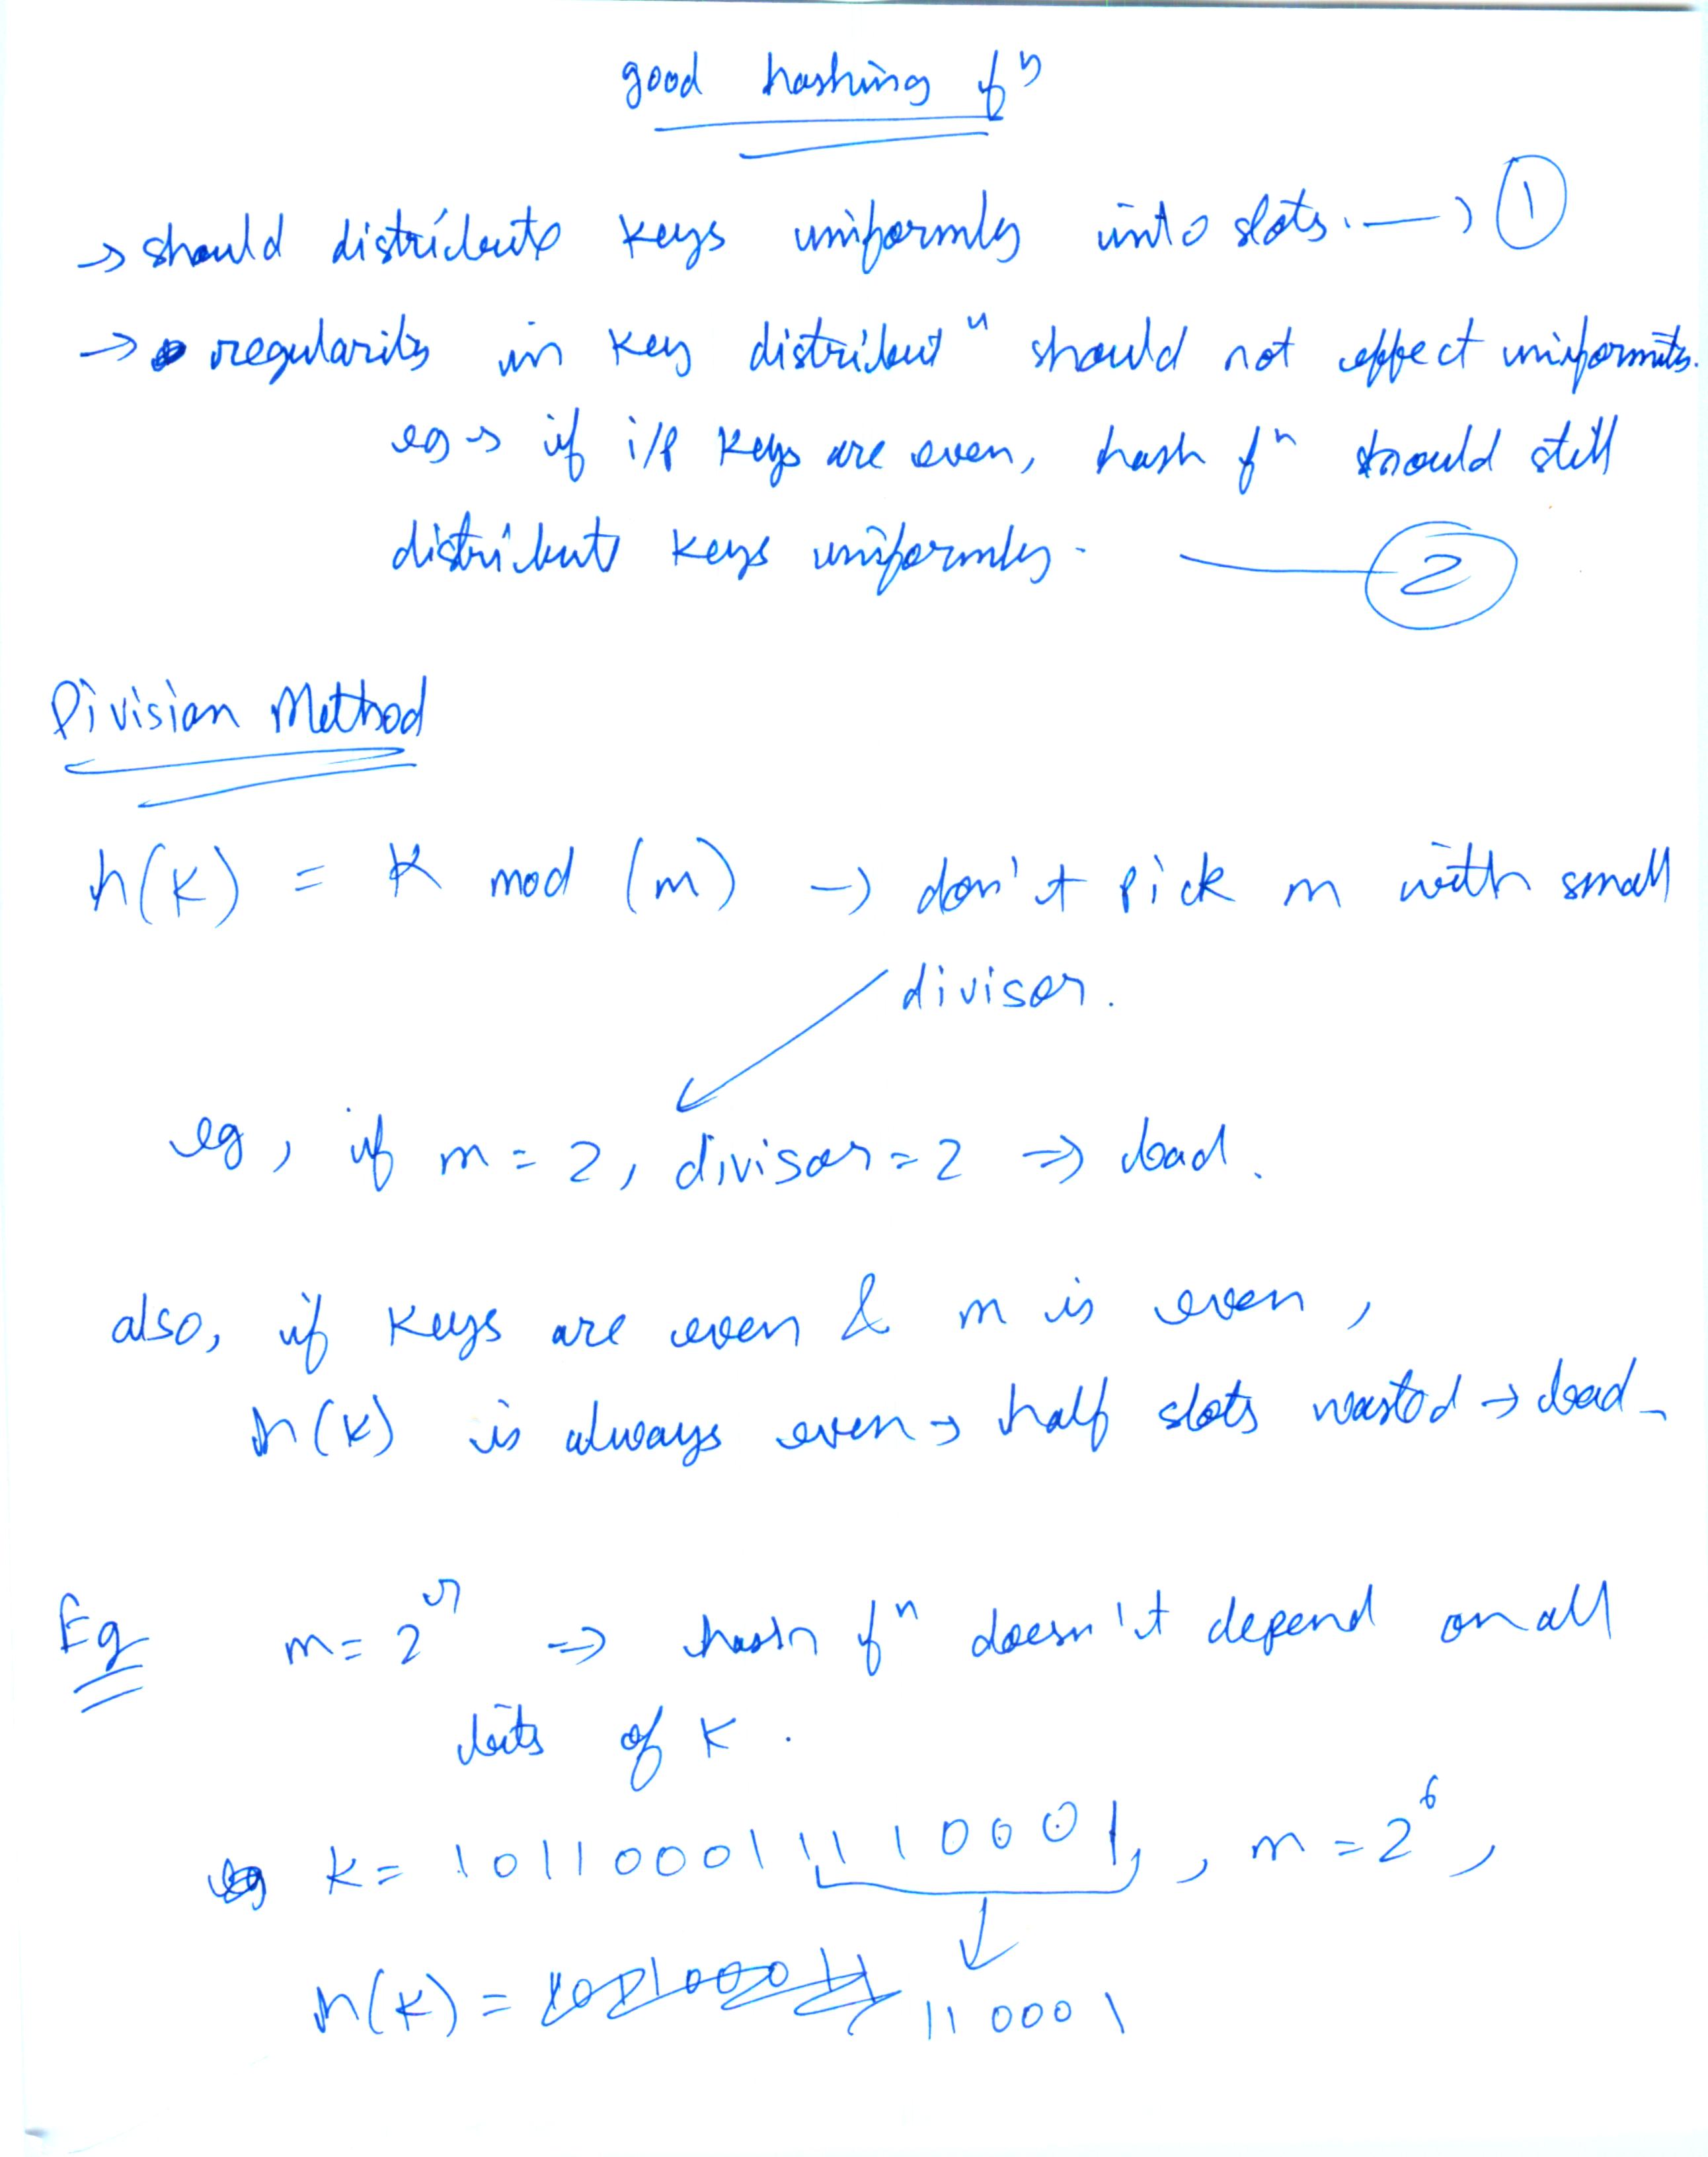 good hashing fⁿ
→ should distribute keys uniformly into slots. → ①
→ regularity in key distributⁿ should not effect uniformity.
eg → if i/p keys are even, hash fⁿ should still
distribute keys uniformly. — ②
Division Method
h(k) = k mod (m) → don't pick m with small
divisor.
eg, if m = 2, divisor = 2 ⇒ bad.
also, if keys are even & m is even,
h(k) is always even → half slots wasted → bad.
Eg m = 2ʳ ⇒ hash fⁿ doesn't depend on all
bits of k.
k = 1011000111 10001, m = 2⁶,
h(k) = 110001